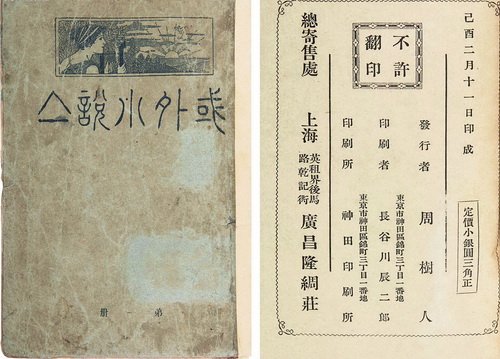 或外小說亼
第一册
己酉二月十一日印成
定價小銀圓三角正
發行者 周樹人
印刷者 東京市神田區錦町三丁目一番地 長谷川辰二郎
印刷所 東京市神田區錦町三丁目一番地 神田印刷所
不許
翻印
總寄售處 上海 英租界後馬路乾記衖 廣昌隆綢莊